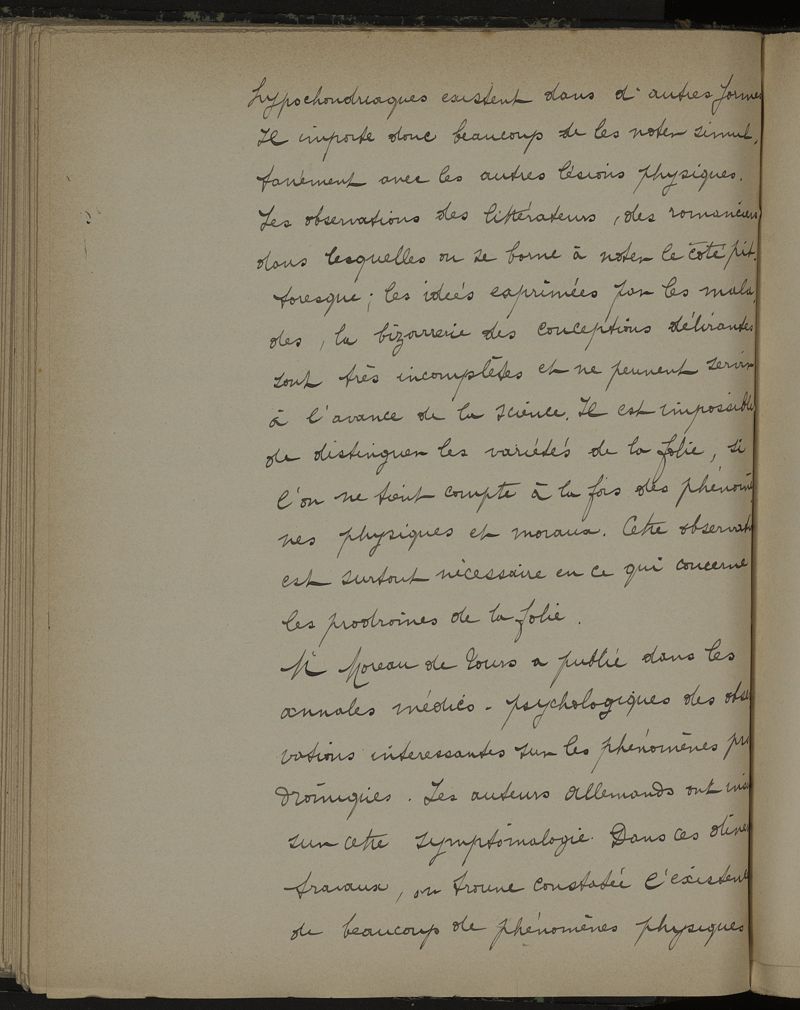 hypochondriaques existent dans d'autres formes
Il importe donc beaucoup de les noter simul,
tanément avec les autres lésions physiques.
Les observations des littérateurs, des romanciers
dans lesquelles on se borne à noter le côté pit,
toresque; les idées exprimées par les mala,
des, la bizarrerie des conceptions délirantes
sont très incomplètes et ne peuvent servir
à l'avance de la science. Il est impossible
de distinguer les variétés de la folie, si
l'on ne tient compte à la fois des phénomè
nes physiques et moraux. Cette observat
est surtout nécessaire en ce qui concerne
les prodromes de la folie.
Mr Moreau de Tours a publié dans les
annales médico-psychologiques des obse
vations interessantes sur les phénomènes pr
dromiques. Les auteurs allemands ont insi
sur cette symptômalogie. Dans ces diver
travaux, on trouve constatée l'éxistenc
de beaucoup de phénomènes physiques